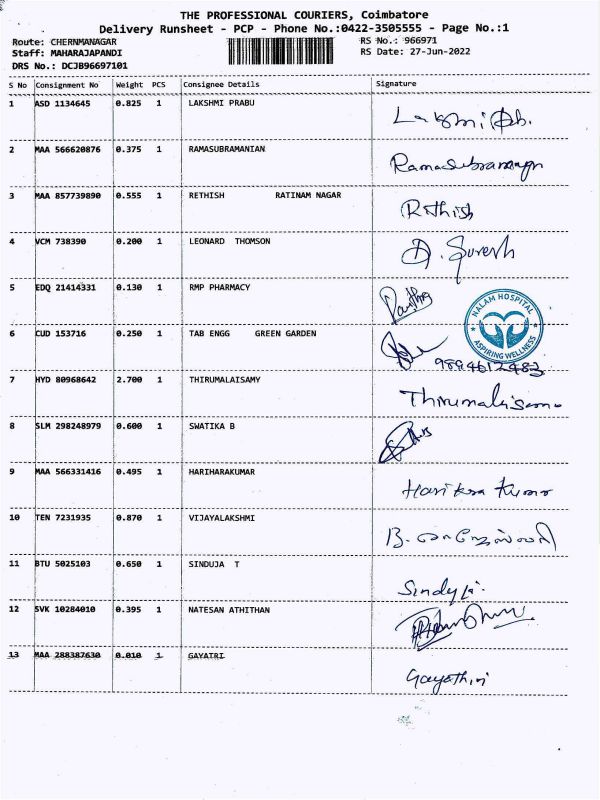 THE PROFESSIONAL COURIERS, Coimbatore
Delivery Runsheet - PCP - Phone No.:0422-3505555 - Page No.:1
Route: CHERNMANAGAR RS No.: 966971
Staff: MAHARAJAPANDI RS Date: 27-Jun-2022
DRS No.: DCJB96697101
S No Consignment No Weight PCS Consignee Details Signature
1 ASD 1134645 0.825 1 LAKSHMI PRABU
2 MAA 566620876 0.375 1 RAMASUBRAMANIAN
3 MAA 857739890 0.555 1 RETHISH RATINAM NAGAR Rithish
4 VCM 738390 0.200 1 LEONARD THOMSON D. Suresh
5 EDQ 21414331 0.130 1 RMP PHARMACY
NALAM HOSPITAL
ASPIRING WELLNESS
6 CUD 153716 0.250 1 TAB ENGG GREEN GARDEN
9894612483
7 HYD 80968642 2.700 1 THIRUMALAISAMY
8 SLM 298248979 0.600 1 SWATIKA B
9 MAA 566331416 0.495 1 HARIHARAKUMAR
10 TEN 7231935 0.870 1 VIJAYALAKSHMI
11 BTU 5025103 0.650 1 SINDUJA T
12 SVK 10284010 0.395 1 NATESAN ATHITHAN
13 MAA 288387630 0.010 1 GAYATRI Gayathiri